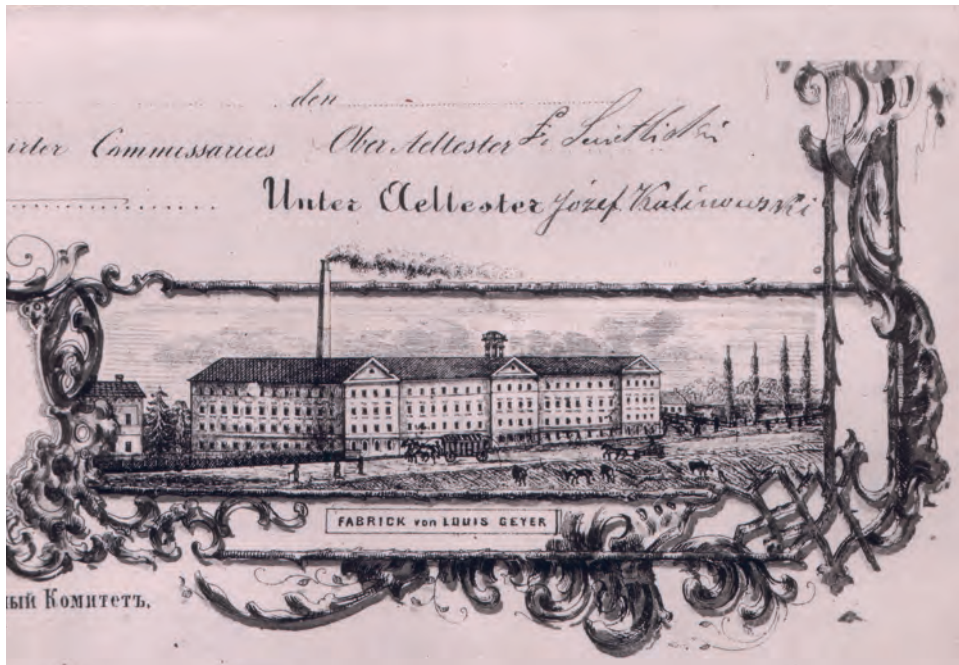 den
irter Commissarius Ober Aeltester
Unter Aeltester Józef Kalinowski
FABRICK von LOUIS GEYER
ный Комитетъ.